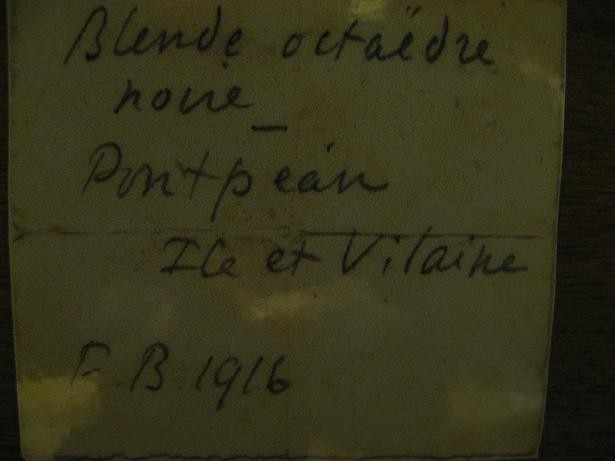 Blende octaëdre
noire _
Pontpéan
Ile et Vilaine
F. B 1916